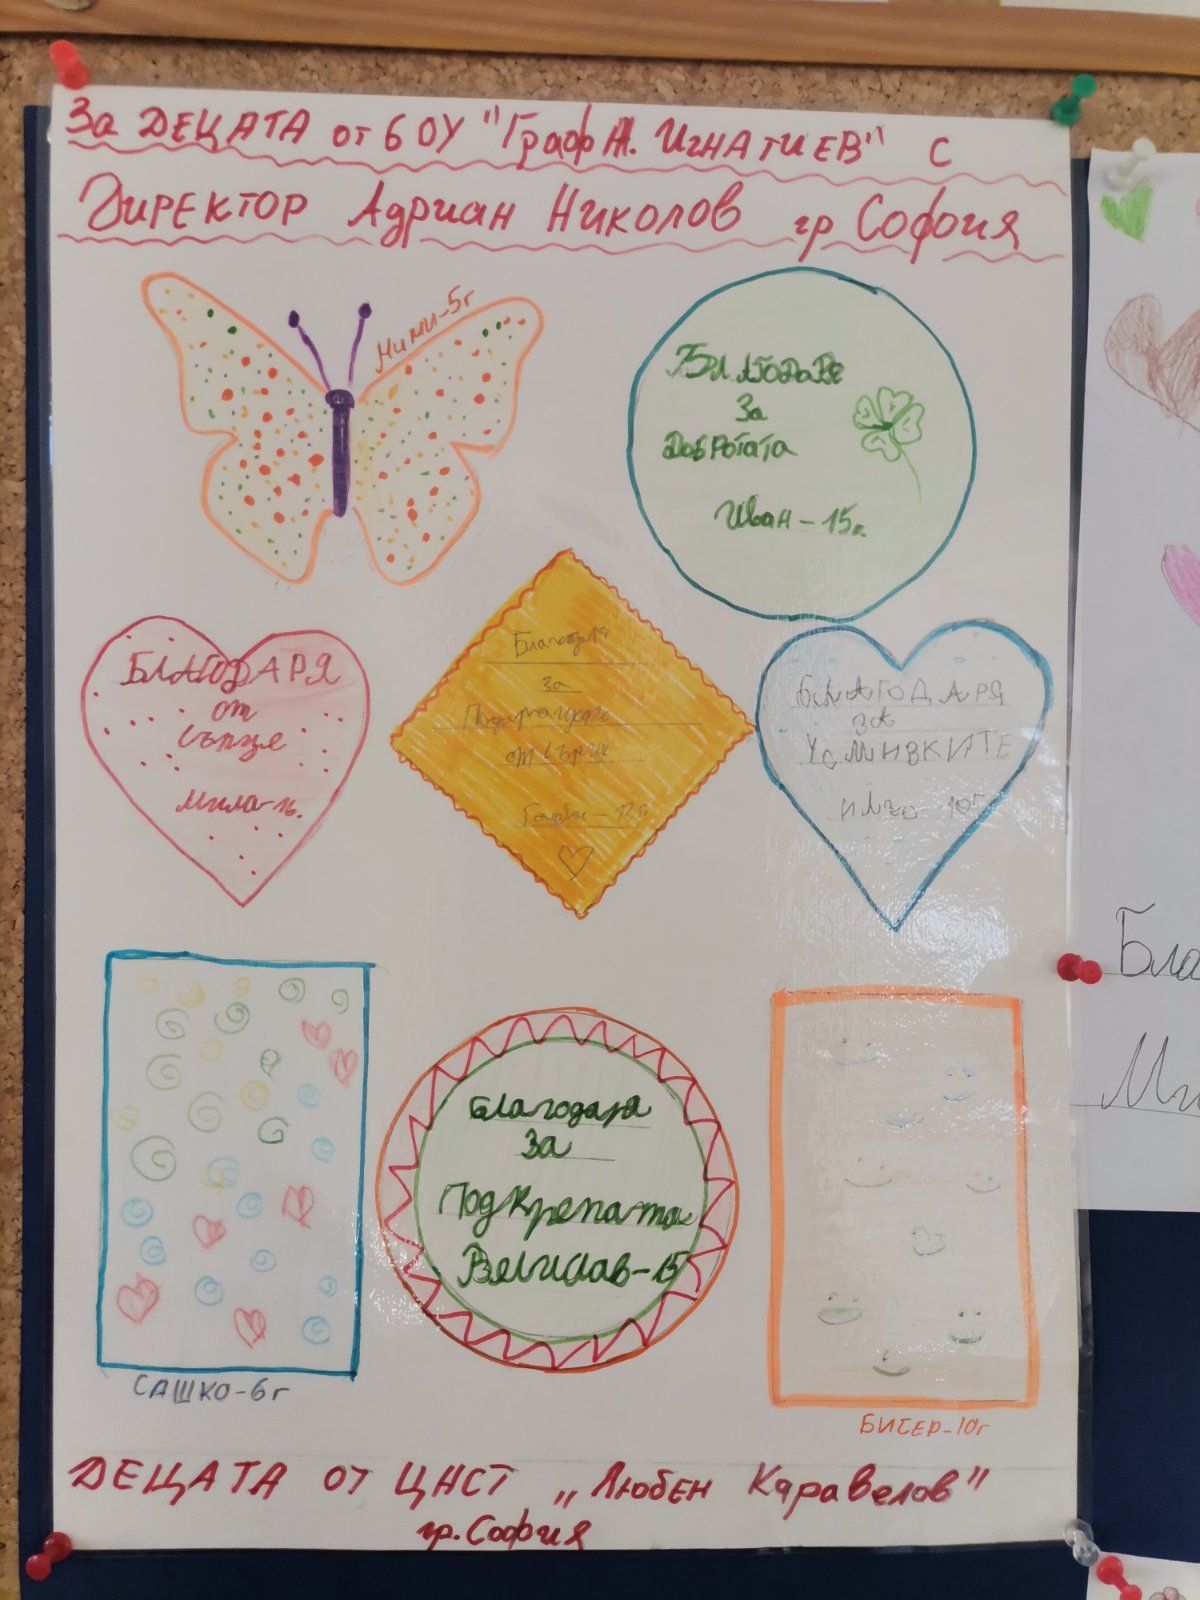 За ДЕЦАТА от 6 ОУ "Граф Н. Игнатиев" с
Директор Адриан Николов гр София
Мими-5г
Благодаря
За
Добротата
Иван-15г.
БЛАГОДАРЯ
от
сърце
Мила-16.
Благодаря
за
от сърце
БЛАГОДАРЯ
ЗА
УСМИВКИТЕ
10г
Благодаря
За
Подкрепата
Велислав-15
САШКО-6г
БИСЕР-10г
ДЕЦАТА ОТ ЦНСТ „Любен Каравелов"
гр.София
Бла
Ми